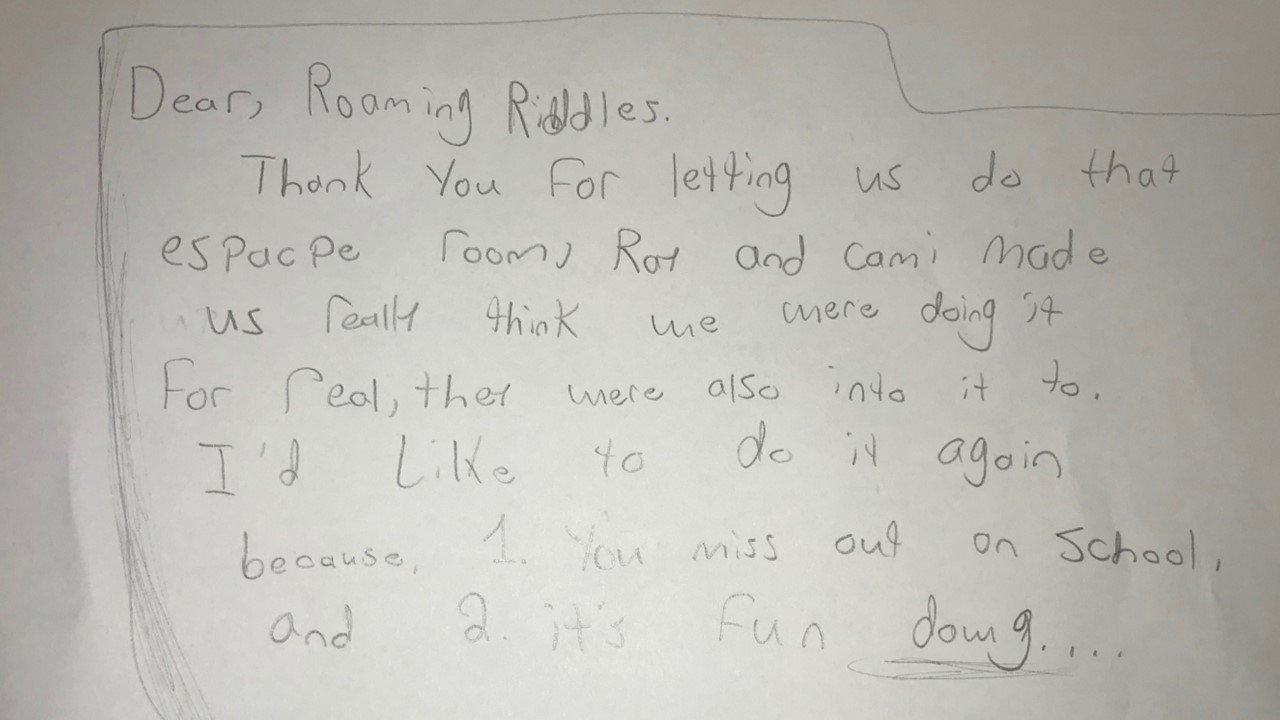 Dear, Roaming Riddles.
Thank You For letting us do that
espacpe room, Ray and Cami made
us really think we were doing it
For real, they were also into it to.
I'd Like to do it again
because, 1. You miss out on School,
and 2. it's fun doing....